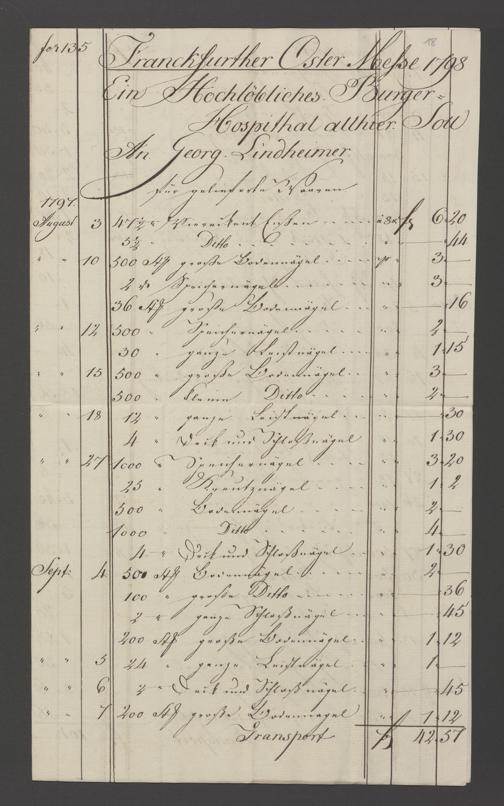 fol 135
18
Franckfurther Oster Messe 1798
Ein Hochlöbliches Burger=
Hospithal allhier Soll
An Georg Lindheimer
für gelieferte Waaren
1797.
August 3 47½ " Viereckent Eisen fl 6 20
5½ " Ditto " 44
" " 10 500 Stk große Bodennägel 3 —
2 do Speichernägel 3 —
36 Stk große Bodennägel " 16
" " 12 500 " Speichernägel 2 —
30 " ganze Leistnägel 1 15
" " 15 500 " große Bodennägel 3 —
500 " kleine Ditto 2 —
" " 18 12 " ganze Leistnägel 30
4 " und Schloßnägel 1 30
" " 27 1000 " Speichernägel 3 20
25 " Kreutznägel 1 2
500 " Bodennägel 2 —
1000 Ditto 4 —
4 " und Schloßnägel 1 30
Sept. 4 500 Stk Bodennägel 2 —
100 " große Ditto 36
2 " ganze Schloßnägel 45
200 Stk große Bodennägel 1 12
" " 5 24 " ganze Leistnägel 1 —
" " 6 2 " und Schloßnägel 45
" " 7 200 Stk große Bodennägel 1 12
Transport fl 42 57